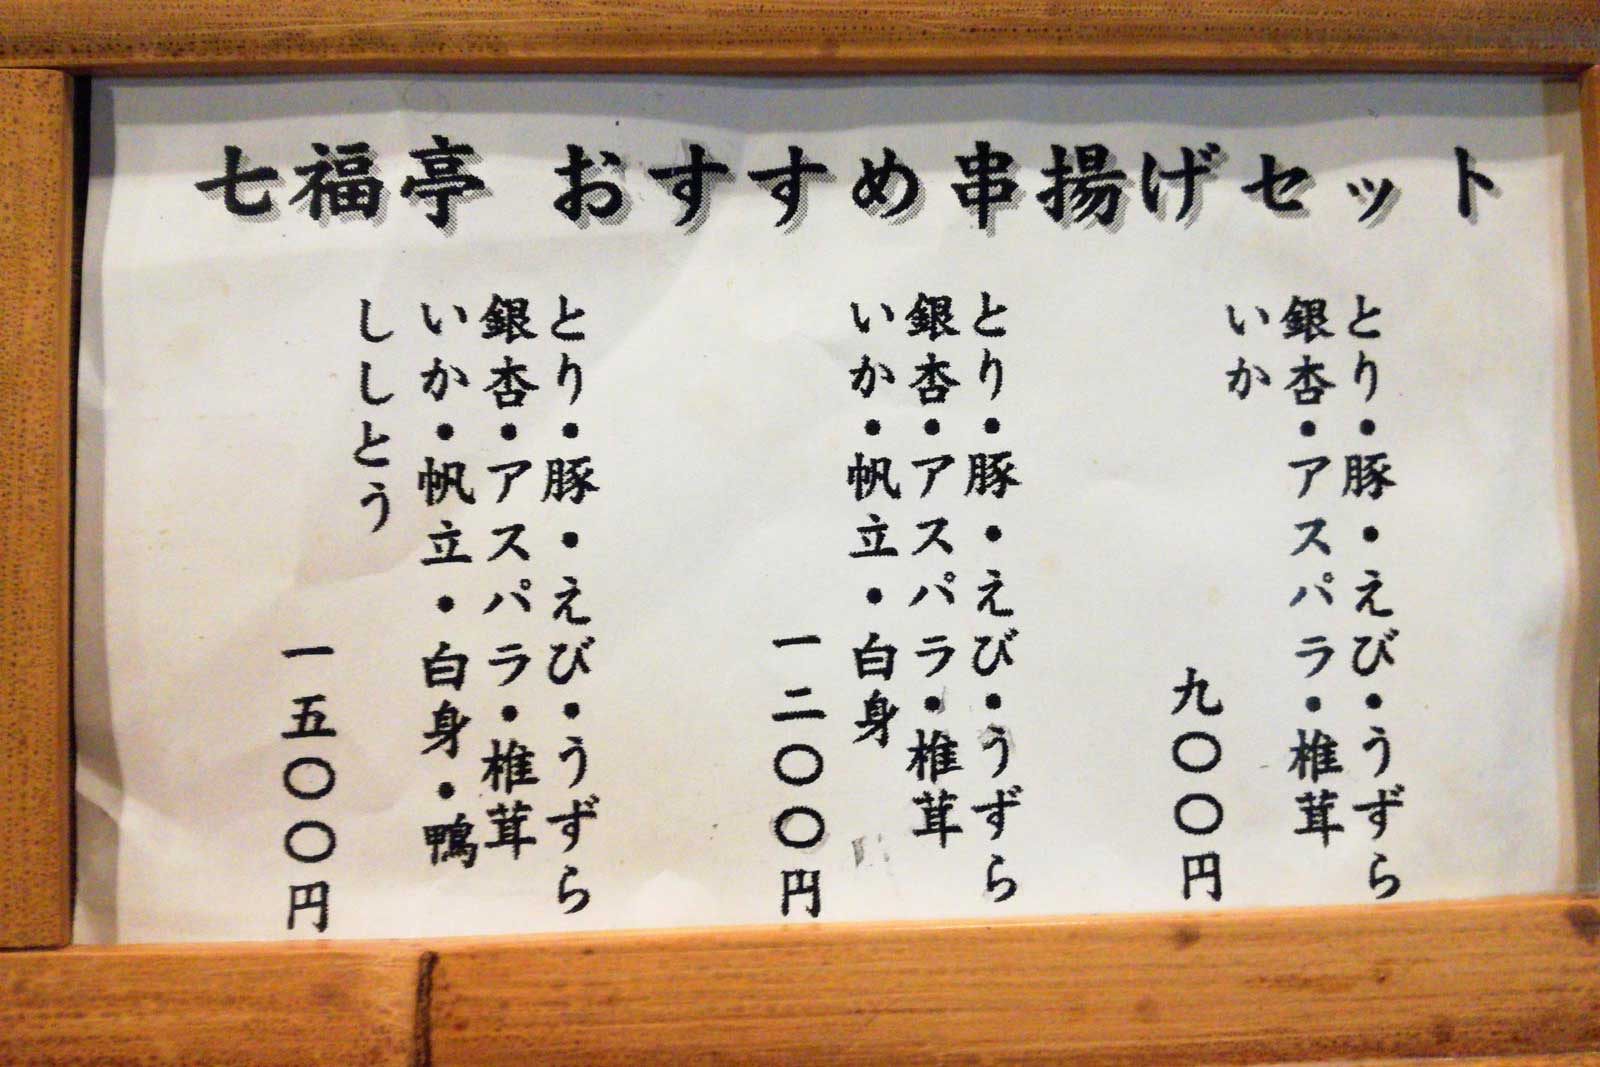 七福亭 おすすめ串揚げセット
とり・豚・えび・うずら
銀杏・アスパラ・椎茸
いか
九〇〇円
とり・豚・えび・うずら
銀杏・アスパラ・椎茸
いか・帆立・白身
一二〇〇円
とり・豚・えび・うずら
銀杏・アスパラ・椎茸
いか・帆立・白身・鴨
ししとう
一五〇〇円